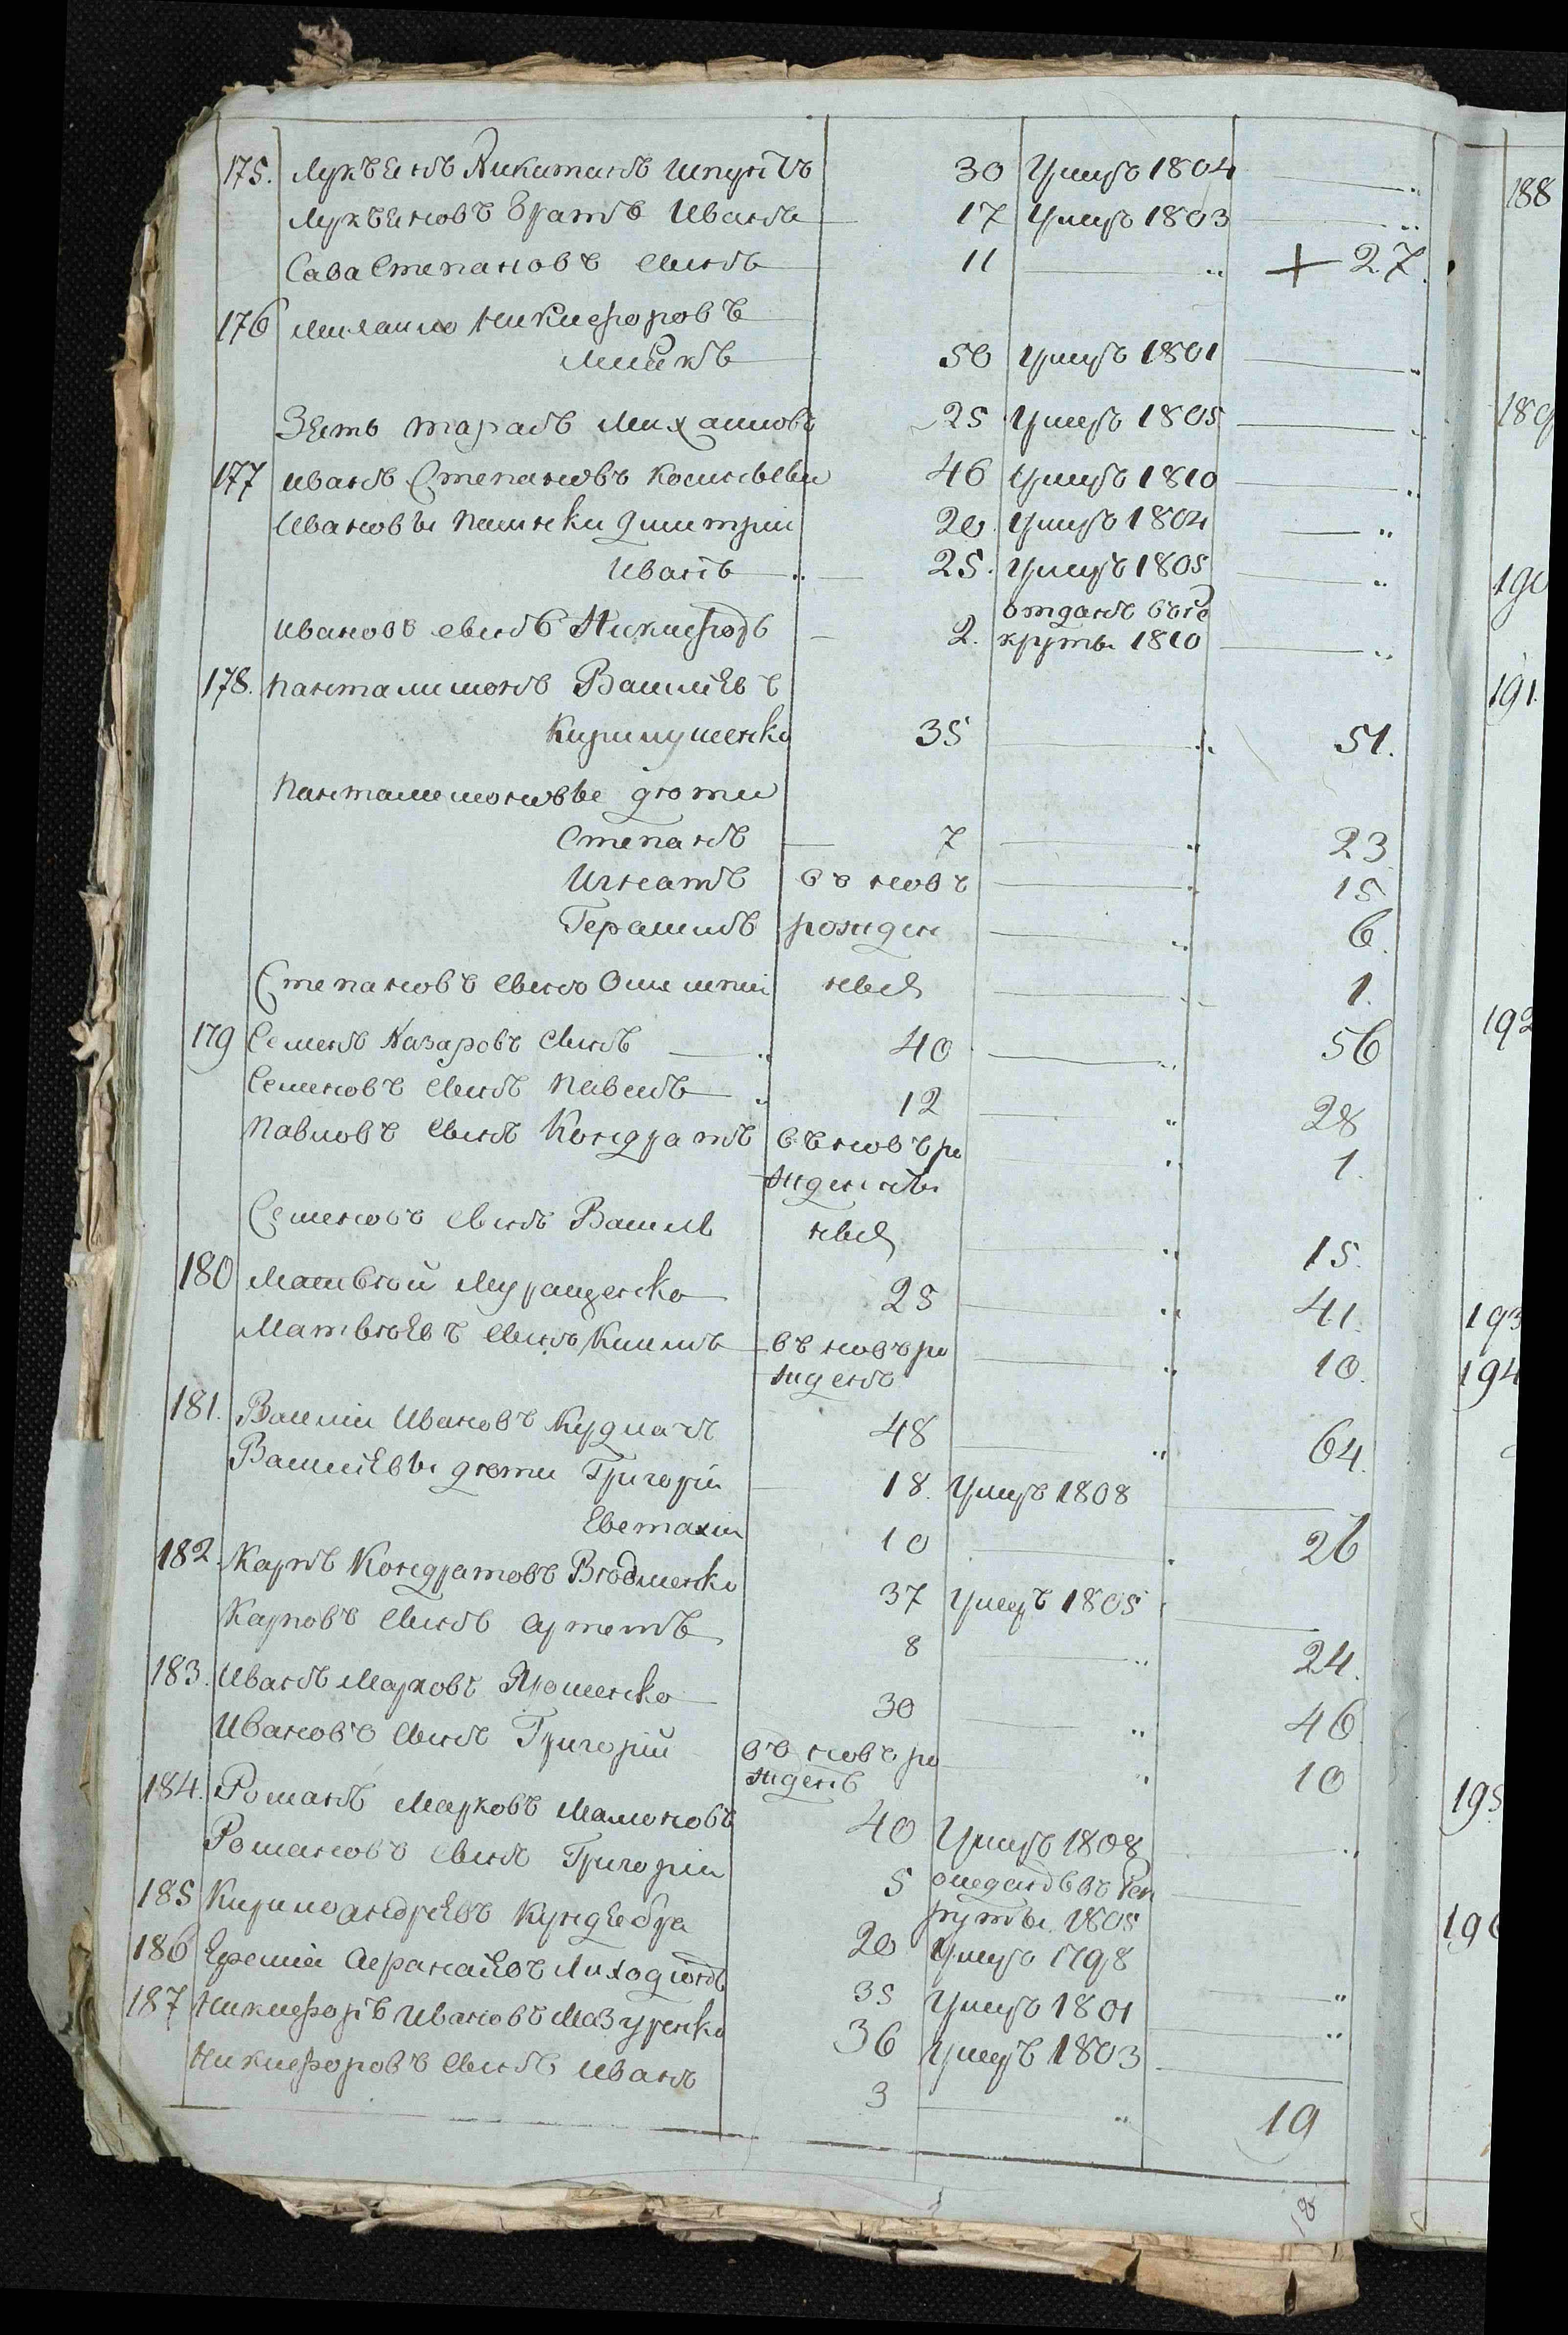 175. Лукъянъ Никитинъ 30 Умеръ 1804 "
Лукъяновъ братъ Иванъ 17 Умеръ 1803 "
Сава Степановъ сынъ 11 " + 27.
176 Михаило Никифоровъ
50 Умеръ 1801 "
Зять Тарасъ Михаиловъ 25 Умеръ 1805
177 Иванъ Степановъ 46 Умеръ 1810 "
Ивановы Дмитрий 20. Умеръ 1804 "
Иванъ 25. Умеръ 1805 "
отданъ въ ре
Ивановъ сынъ Никифоръ 2. круты 1810 "
178. Панталимонъ Василіевъ
Кирилушенко 35 " 51.
Панталимоновы дѣти
Степанъ 7 " 23
Игнатъ въ новъ " 15
Герасимъ рожден " 6.
Степановъ сынъ ные " 1.
179 Семенъ Назаровъ сынъ " 40 " 56
Семеновъ сынъ Павелъ " 12 " 28
Павловъ сынъ Кондратъ въ новъ ро " 1.
жденны
Семеновъ сынъ Василь ные " 15.
180 Матвѣй 25 " 41.
Матвѣевъ сынъ Климъ въ новъ ро " 10.
жденъ
181. Василій Ивановъ 48 " 64.
Василіевы дѣти Григорій 18. Умеръ 1808
Евстахій 10 " 26
182. Карпъ Кондратовъ 37 Умеръ 1805
Карповъ сынъ Артемъ 8 " 24.
183. Иванъ Марковъ 30 " 46
Ивановъ сынъ Григорий въ новъ ро " 10
жденъ
184. Романъ Марковъ Мамоновъ 40 Умеръ 1808 "
Романовъ сынъ Григорій 5 отданъ въ рек
руты 1805
185 Кирило Андреевъ 20 Умеръ 1798 "
186 Ефемій 35 Умеръ 1801 "
187 Никифоръ Ивановъ Мазуренко 36 Умеръ 1803
Никифоровъ сынъ Иванъ 3 " 19
18
188
189
190
191.
192
193
194
195
196